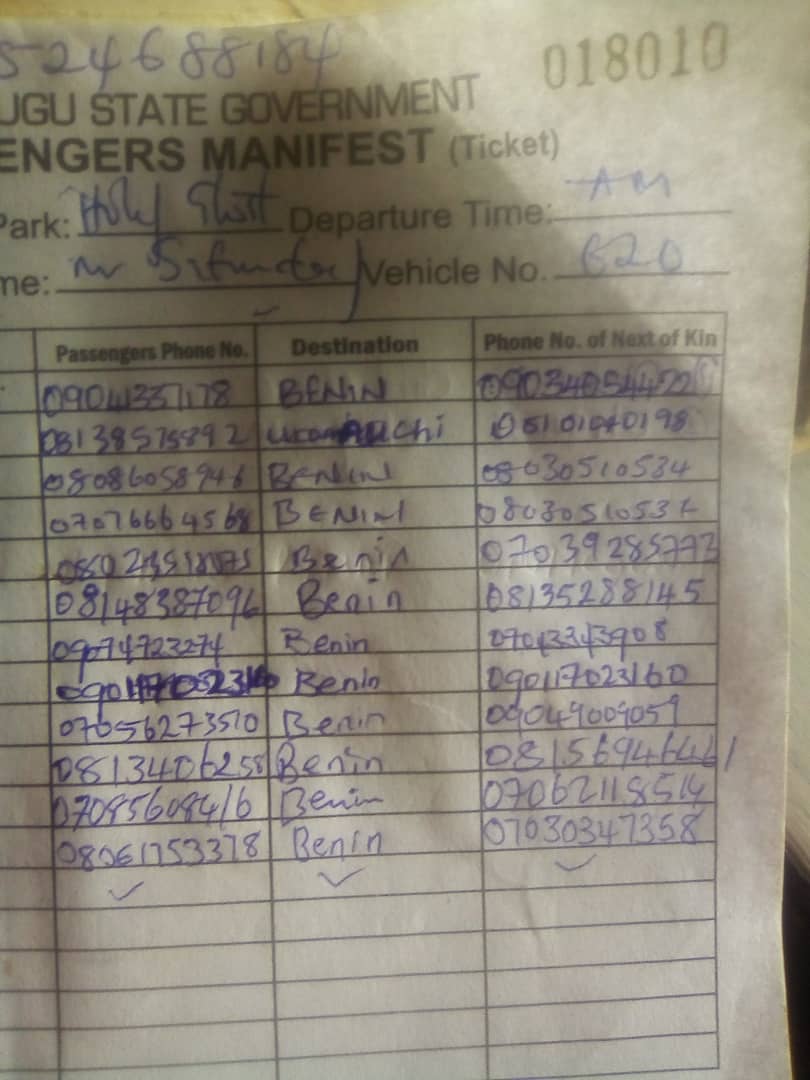 5-24688184 018010
UGU STATE GOVERNMENT
ENGERS MANIFEST (Ticket)
Park: Holy Ghost Departure Time: AM
me: Mr Vehicle No. 620
Passengers Phone No. Destination Phone No. of Next of Kin
BENIN
08138575892
08086058946 BENIN 08030510534
07076664568 BENIN
Benin 07039285773
08148387096 Benin 08135288145
09074723274 Benin 07043343908
Benin 090117023160
07056273510 Benin 09049009059
0813406258 Benin 08156946461
07085608416 Benin 07062118514
08061753378 Benin 07030347358